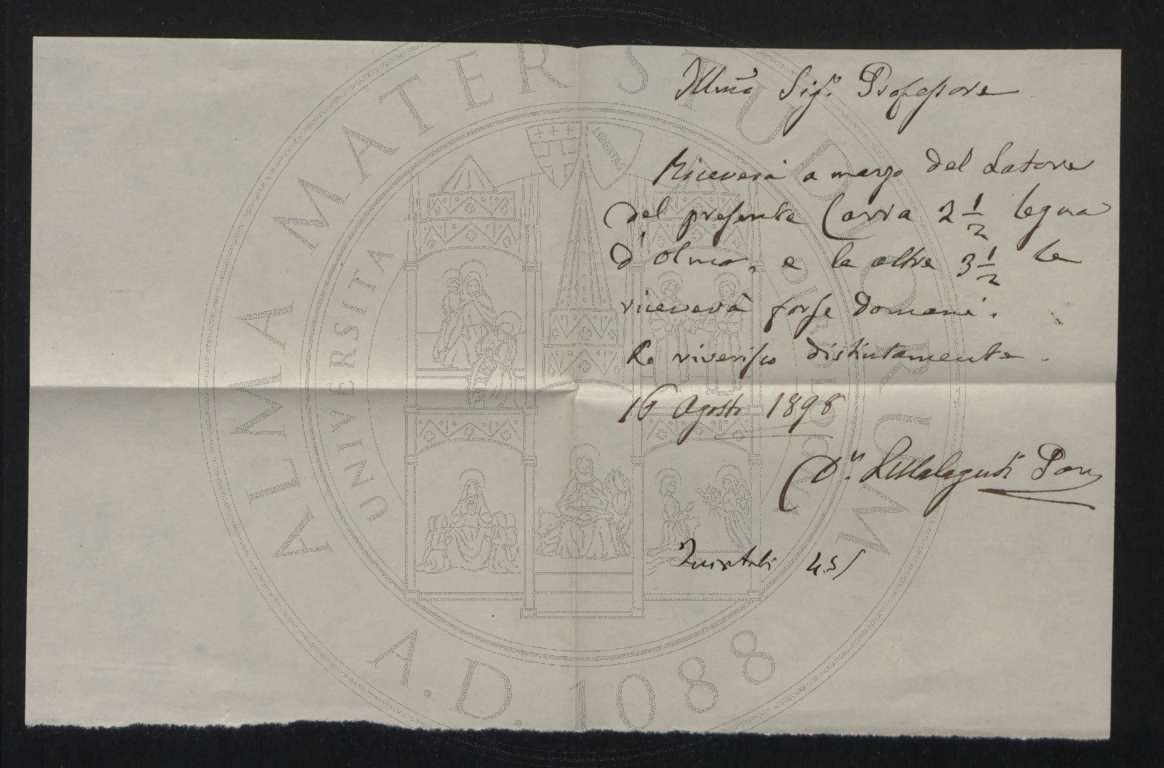 Illmo Sigr. Professore
Riceverà a mezzo del Latore
del presente Carra 2 1/2 legna
d'olmo, e le altre 3 1/2 le
riceverà forse domani.
La riverisco distintamente.
16 Agosto 1898
Quintali 45
ALMA MATER STUDIORUM
UNIVERSITA DI BOLOGNA
A.D. 1088
LIBERTAS